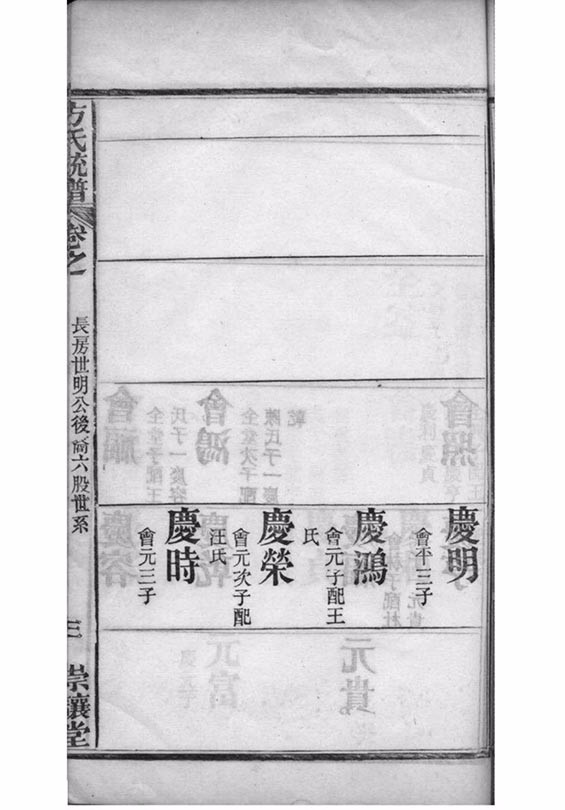 慶明
會平三子
慶鴻
會元子配王
氏
慶榮
會元次子配
汪氏
慶時
會元三子
方氏統譜
卷之
長房世明公後
六股世系
三
崇讓堂